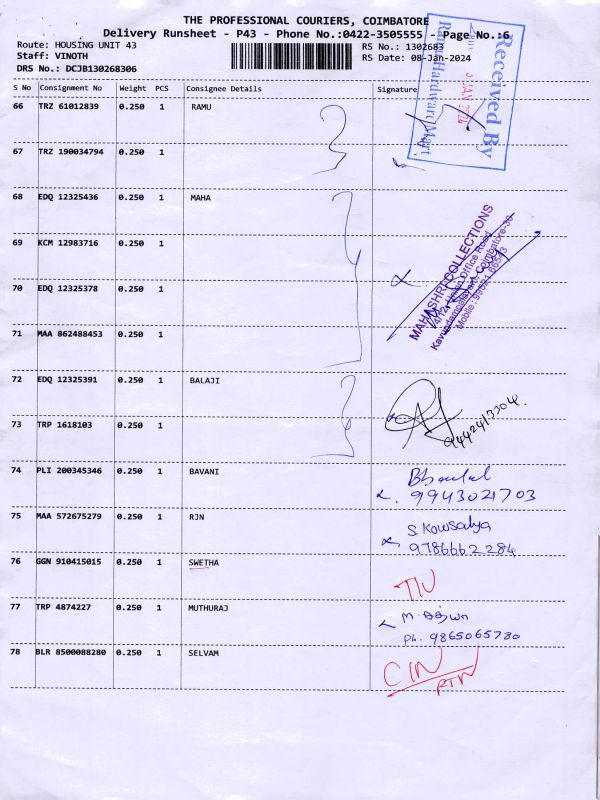 THE PROFESSIONAL COURIERS, COIMBATORE
Delivery Runsheet - P43 - Phone No.:0422-3505555 - Page No.:6
Route: HOUSING UNIT 43
RS No.: 1302683
Staff: VINOTH
RS Date: 08-Jan-2024
DRS No.: DCJB130268306
S No Consignment No Weight PCS Consignee Details Signature
66 TRZ 61012839 0.250 1 RAMU
Received By
JAN 2024
Ramu Hardware Mart
67 TRZ 190034794 0.250 1
68 EDQ 12325436 0.250 1 MAHA
69 KCM 12983716 0.250 1
MAHASHRI COLLECTIONS
Kavundampalayam, Coimbatore-30
70 EDQ 12325378 0.250 1
71 MAA 862488453 0.250 1
72 EDQ 12325391 0.250 1 BALAJI
73 TRP 1618103 0.250 1
74 PLI 200345346 0.250 1 BAVANI
9943021703
75 MAA 572675279 0.250 1 RJN
S. Kowsalya
9786662284
76 GGN 910415015 0.250 1 SWETHA
77 TRP 4874227 0.250 1 MUTHURAJ
Ph. 9865065780
78 BLR 8500088280 0.250 1 SELVAM
CIN
RTN